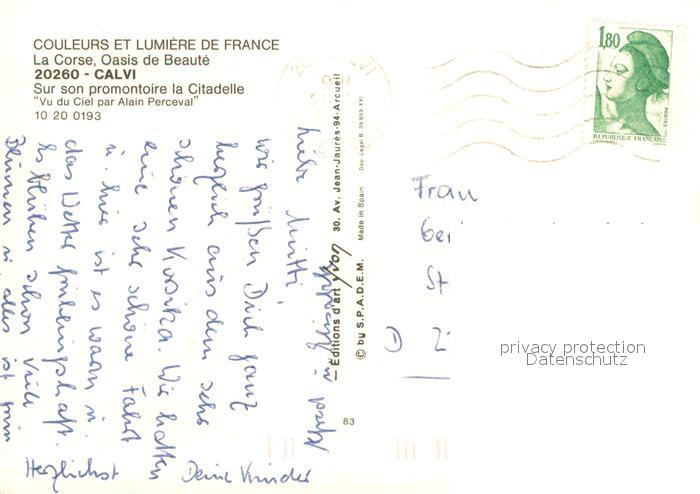 COULEURS ET LUMIÈRE DE FRANCE
La Corse, Oasis de Beauté
20260 - CALVI
Sur son promontoire la Citadelle
"Vu du Ciel par Alain Perceval"
10 20 0193
Liebe Mutti,
wir grüßen Dich ganz
herzlich aus dem sehr
schönen Korsika. Wir hatten
eine sehr schöne Fahrt
u. hier ist es warm u.
das Wetter frühlingshaft.
Es blühen schon viele
Blumen u. alles ist grün
Herzlichst Deine Kinder
— Editions d'art yvon 30, Av. Jean-Jaurès-94-Arcueil
© by S.P.A.D.E.M. Made in Spain Dep. Legal B. 39.859 XXI
83
1,80
REPUBLIQUE FRANÇAISE
Frau
D
privacy protection
Datenschutz